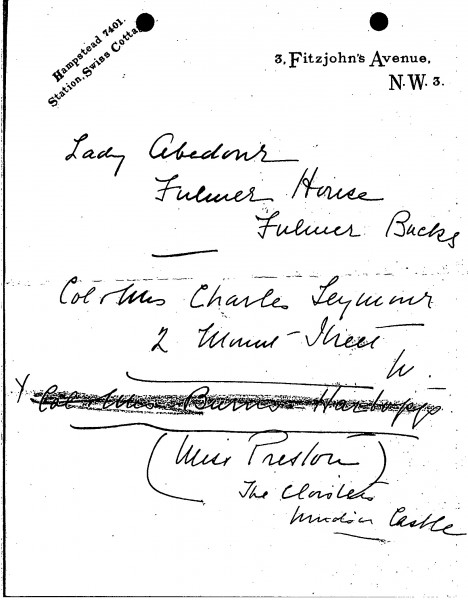 Hampstead 7401.
Station, Swiss Cottage
3, Fitzjohn's Avenue,
N.W. 3.
Lady Abedour
Fulmer House
Fulmer Bucks
Col & Mrs Charles Seymour
2 Mount Street
W.
Col & Mrs Burns Hartopp
(Miss Preston)
The Cloisters
Windsor Castle